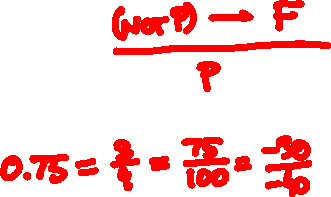 (NOT P) → F
P
0.75 = 3/4 = 75/100 = -30/-40